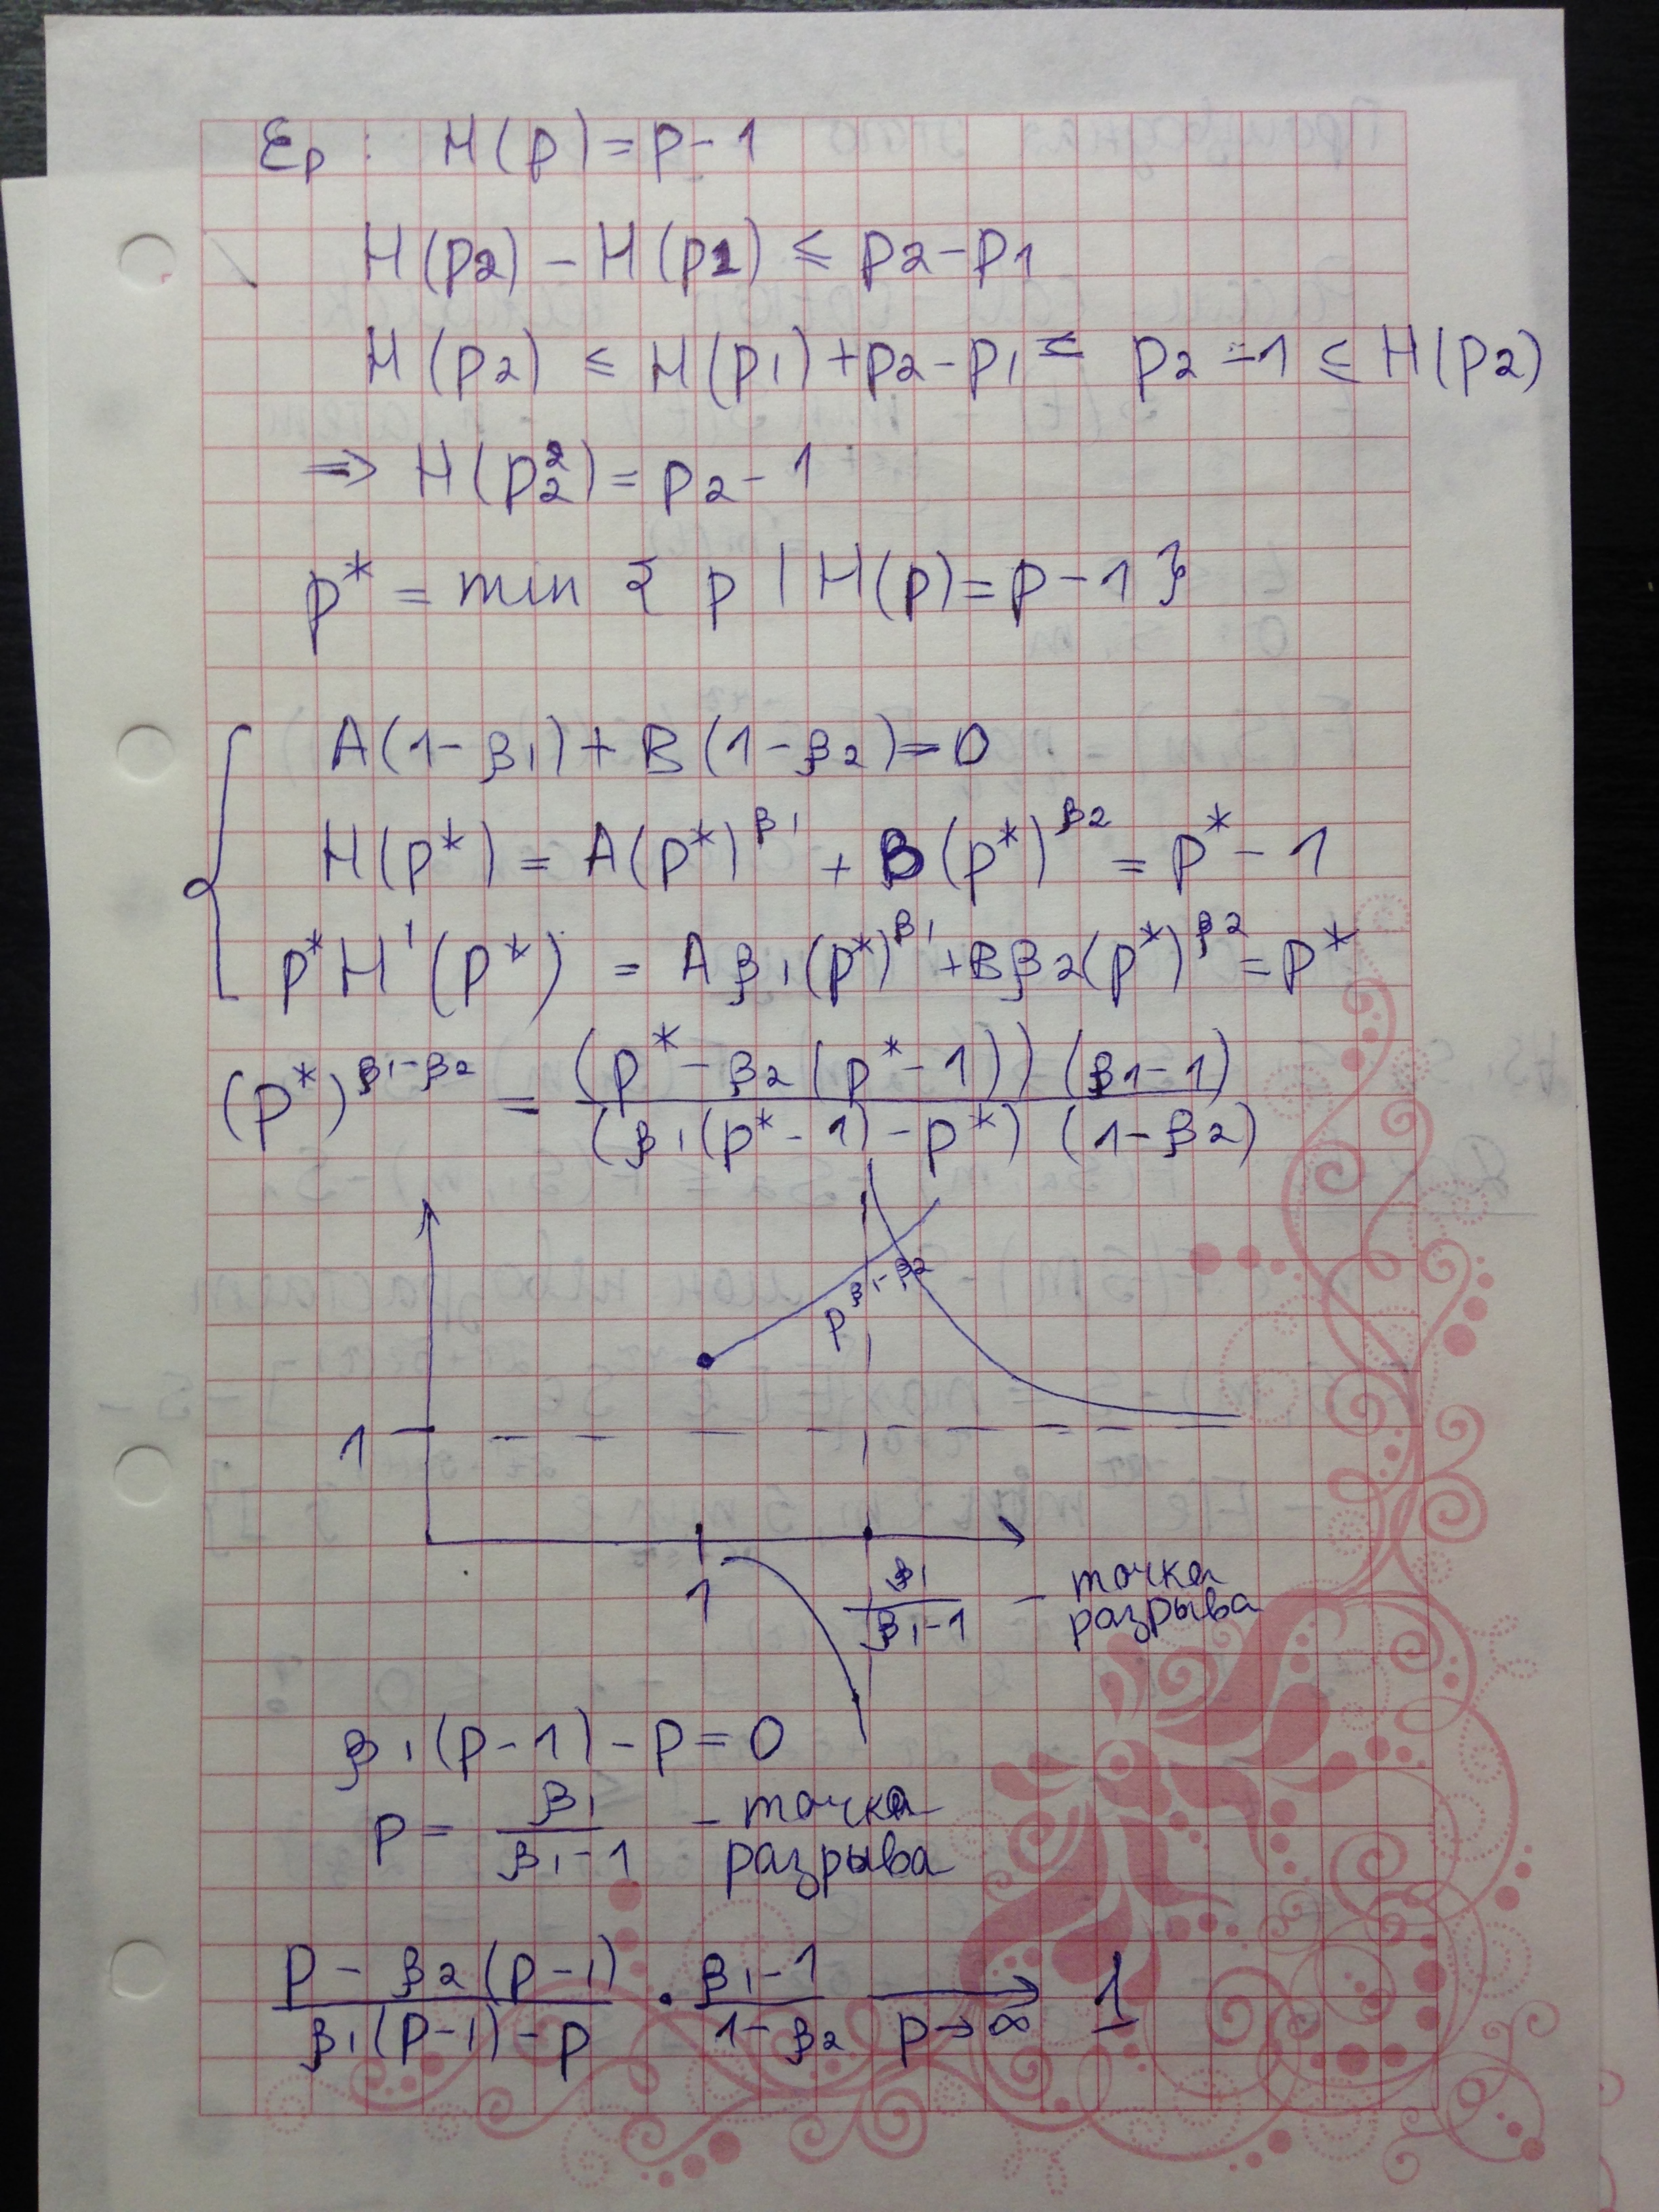 Ep : H(p)=p-1
H(p2) - H(p1) ≤ p2-p1
H(p2) ≤ H(p1)+p2-p1 ≤ p2-1 ≤ H(p2)
⇒ H(p2)=p2-1
p* = min { p | H(p)=p-1 }
A(1-β1)+B(1-β2)=0
H(p*) = A(p*)^β1 + B(p*)^β2 = p*-1
p*H'(p*) = Aβ1(p*)^β1+Bβ2(p*)^β2=p*
(p*)^β1-β2 = (p*-β2(p*-1))(β1-1) / (β1(p*-1)-p*)(1-β2)
p^β1-β2
1
1
β1/β1-1 - точка
разрыва
β1(p-1)-p=0
p= β1/β1-1 - точка
разрыва
p-β2(p-1)/β1(p-1)-p · β1-1/1-β2 → p→∞ 1